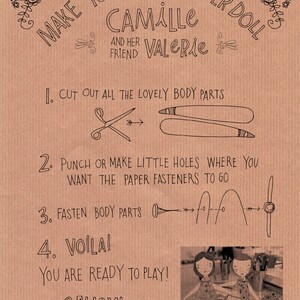 MAKE DOLL
CAMILLE
AND HER
FRIEND VALERIE
1. CUT OUT ALL THE LOVELY BODY PARTS
2. PUNCH OR MAKE LITTLE HOLES WHERE YOU
WANT THE PAPER FASTENERS TO GO
3. FASTEN BODY PARTS
4. VOILA!
YOU ARE READY TO PLAY!